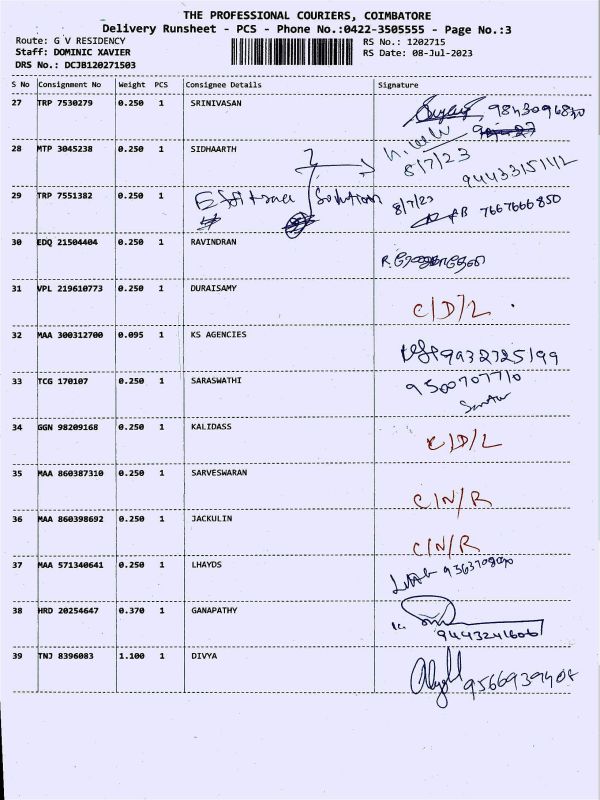 THE PROFESSIONAL COURIERS, COIMBATORE
Delivery Runsheet - PCS - Phone No.:0422-3505555 - Page No.:3
Route: G V RESIDENCY RS No.: 1202715
Staff: DOMINIC XAVIER RS Date: 08-Jul-2023
DRS No.: DCJB120271503
S No Consignment No Weight PCS Consignee Details Signature
27 TRP 7530279 0.250 1 SRINIVASAN
28 MTP 3045238 0.250 1 SIDHAARTH 8/7/23 9443315142
29 TRP 7551382 0.250 1 Solution 8/7/23 7667666850
30 EDQ 21504404 0.250 1 RAVINDRAN
31 VPL 219610773 0.250 1 DURAISAMY C/D/L
32 MAA 300312700 0.095 1 KS AGENCIES 9932725199
33 TCG 170107 0.250 1 SARASWATHI 9500707710
34 GGN 98209168 0.250 1 KALIDASS C/D/L
35 MAA 860387310 0.250 1 SARVESWARAN C/N/R
36 MAA 860398692 0.250 1 JACKULIN C/N/R
37 MAA 571340641 0.250 1 LHAYDS
38 HRD 20254647 0.370 1 GANAPATHY 9443241606
39 TNJ 8396083 1.100 1 DIVYA 9566939408